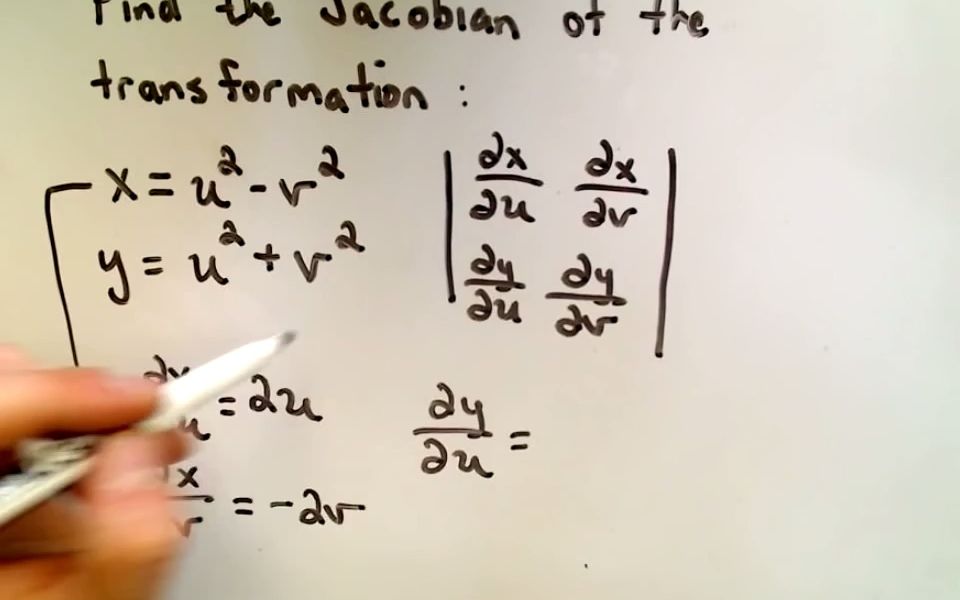 Find the Jacobian of the
transformation :
x = u² - v²
y = u² + v²
| ∂x/∂u ∂x/∂v |
| ∂y/∂u ∂y/∂v |
= 2u
∂y/∂u =
= -2v